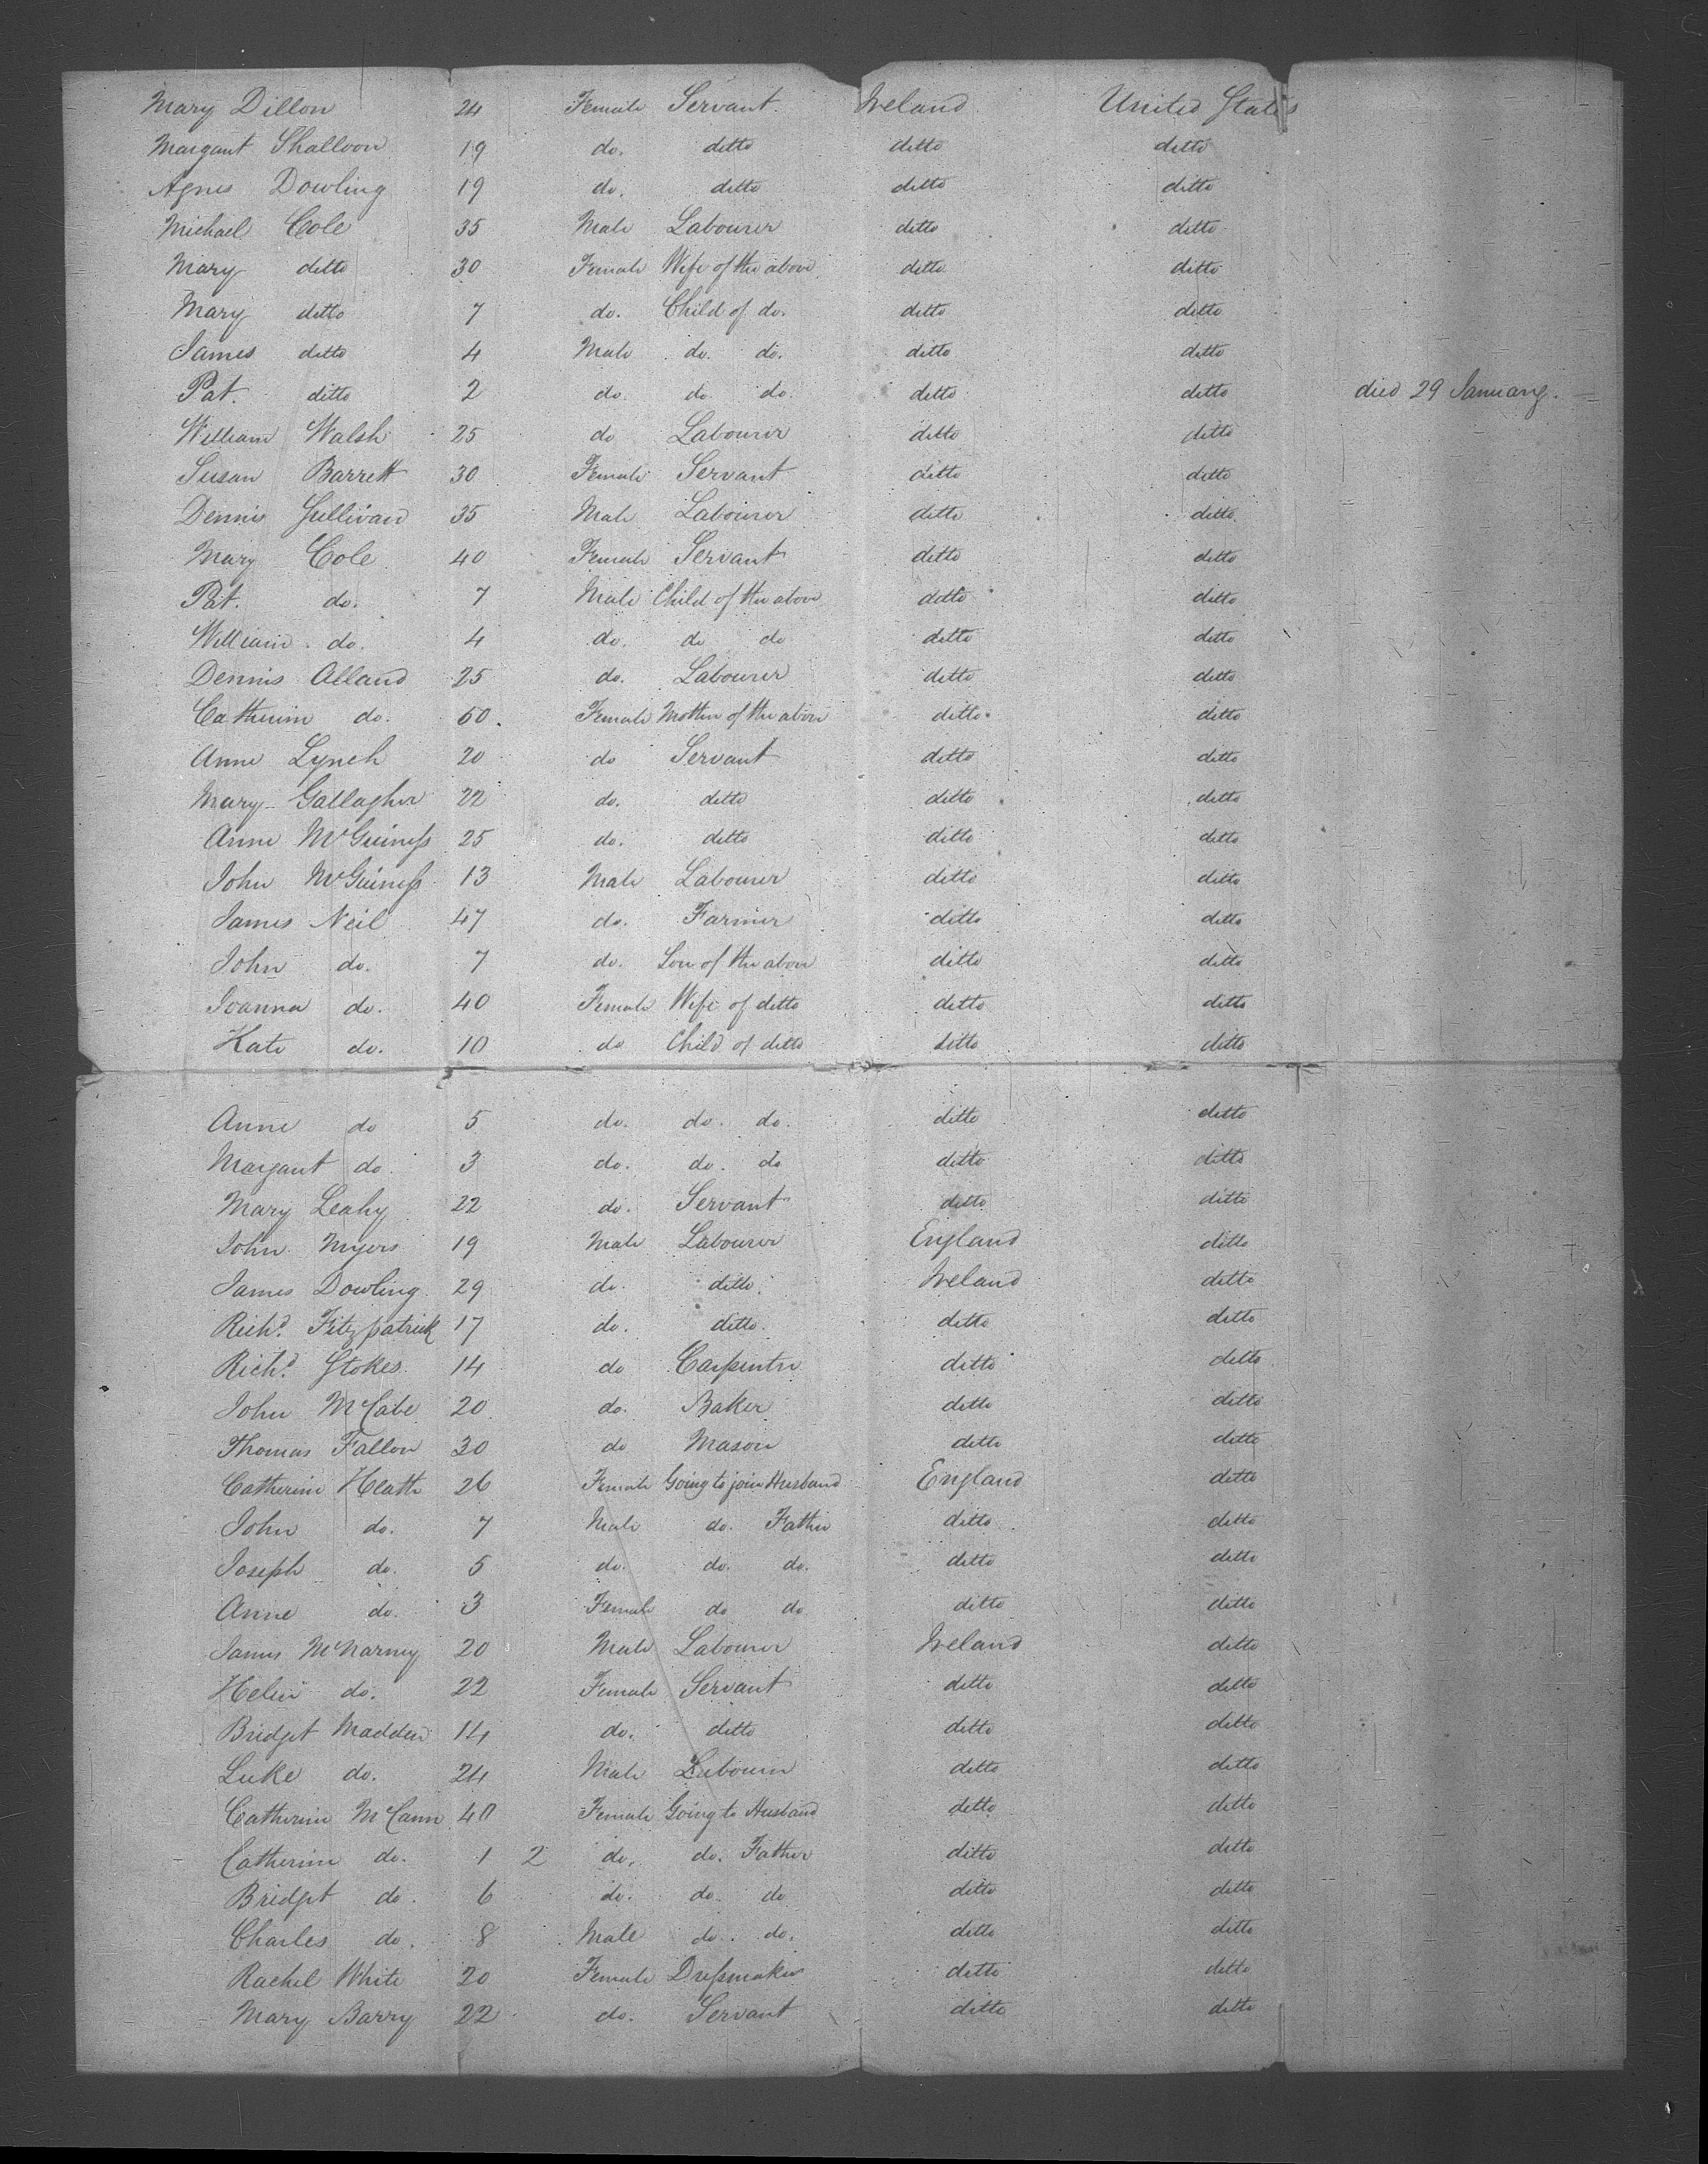 Mary Dillon 24 Female Servant Ireland United States
Margaret Shalloon 19 do. ditto ditto ditto
Agnes Dowling 19 do. ditto ditto ditto
Michael Cole 35 Male Labourer ditto ditto
Mary ditto 30 Female Wife of the above ditto ditto
Mary ditto 7 do. Child of do. ditto ditto
James ditto 4 Male do. do. ditto ditto
Pat. ditto 2 do. do. do. ditto ditto died 29 January.
William Walsh 25 do Labourer ditto ditto
Susan Barrett 30 Female Servant ditto ditto
Dennis Sullivan 35 Male Labourer ditto ditto
Mary Cole 40 Female Servant ditto ditto
Pat. do. 7 Male Child of the above ditto ditto
William do. 4 do. do do ditto ditto
Dennis Alland 25 do. Labourer ditto ditto
Catherine do. 60. Female Mother of the above ditto ditto
Anne Lynch 20 do Servant ditto ditto
Mary Gallagher 22 do. ditto ditto ditto
Anne McGuiness 25 do. ditto ditto ditto
John McGuiness 13 Male Labourer ditto ditto
James Neil 47 do. Farmer ditto ditto
John do. 7 do. Son of the above ditto ditto
Joanna do. 40 Female Wife of ditto ditto ditto
Kate do. 10 do Child of ditto ditto ditto
Anne do 5 do. do. do. ditto ditto
Margaret do. 3 do. do. do ditto ditto
Mary Leahy 22 do. Servant ditto ditto
John Myers 19 Male Labourer England ditto
James Dowling 29 do. ditto. Ireland ditto
Richd. Fitzpatrick 17 do. ditto. ditto ditto
Richd. Stokes 14 do Carpenter ditto ditto
John McCabe 20 do. Baker ditto ditto
Thomas Fallon 30 do Mason ditto ditto
Catherine Heath 26 Female Going to join Husband England ditto
John do. 7 Male do. Father ditto ditto
Joseph do. 5 do. do. do. ditto ditto
Anne do. 3 Female do do ditto ditto
James McNarney 20 Male Labourer Ireland ditto
Helen do. 22 Female Servant ditto ditto
Bridget Madden 14 do. ditto ditto ditto
Luke do. 24 Male Labourer ditto ditto
Catherine McCann 40 Female Going to Husband ditto ditto
Catherine do. 1 2 do. do. Father ditto ditto
Bridget do. 6 do. do. do ditto ditto
Charles do. 8 Male do. do. ditto ditto
Rachel White 20 Female Dressmaker ditto ditto
Mary Barry 22 do. Servant ditto ditto